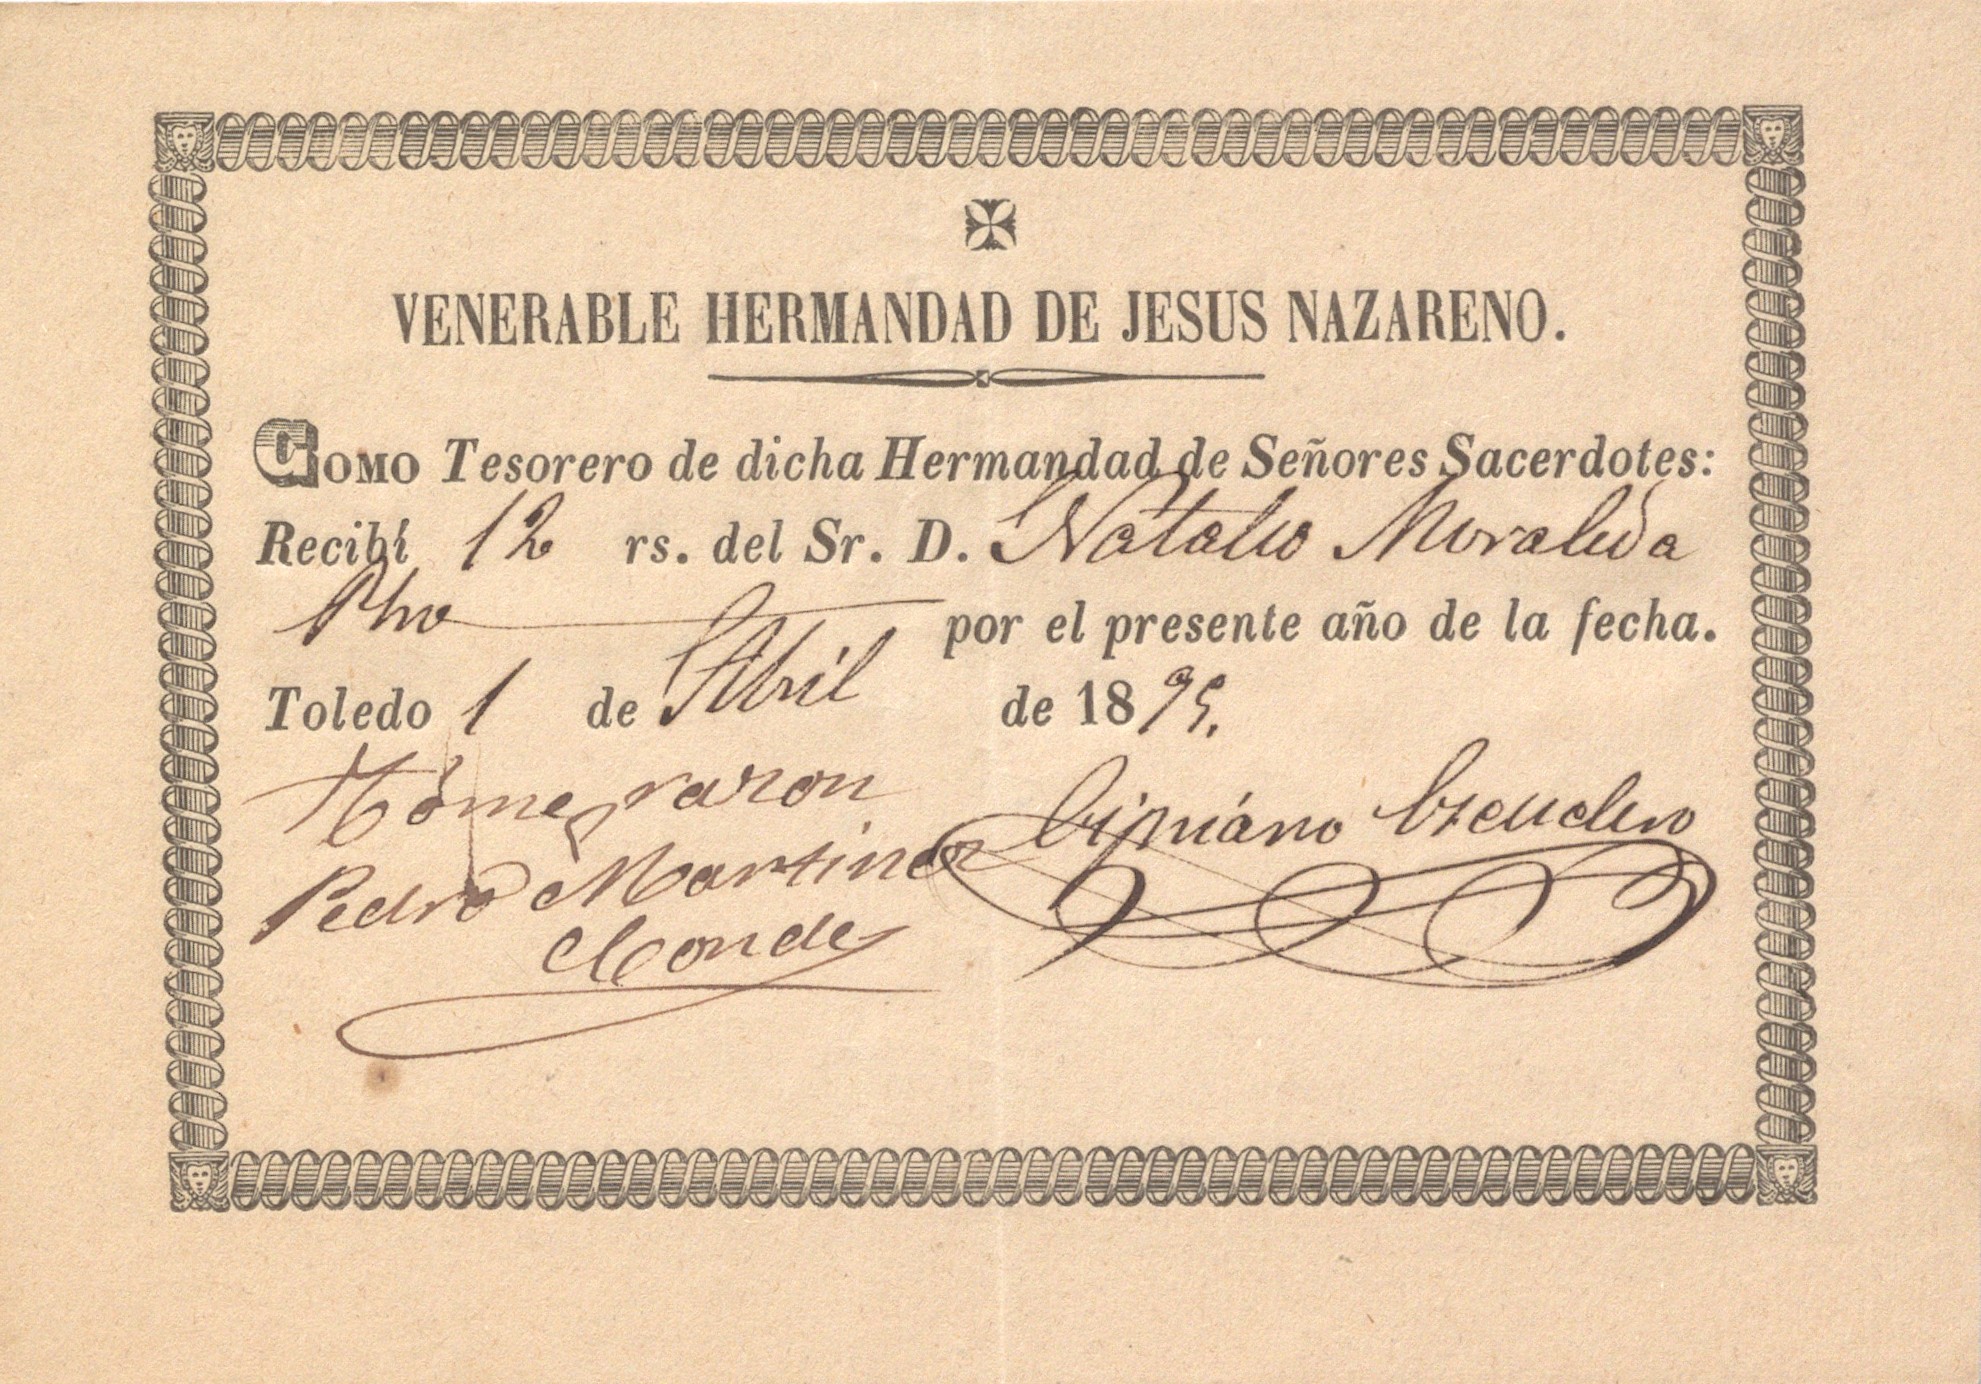 VENERABLE HERMANDAD DE JESUS NAZARENO.
COMO Tesorero de dicha Hermandad de Señores Sacerdotes:
Recibí 12 rs. del Sr. D. Natalio Moraleda
Pbro por el presente año de la fecha.
Toledo 1 de Abril de 1895.
Tóme razon
Cipriáno Escudero
Pedro Martinez
Conde